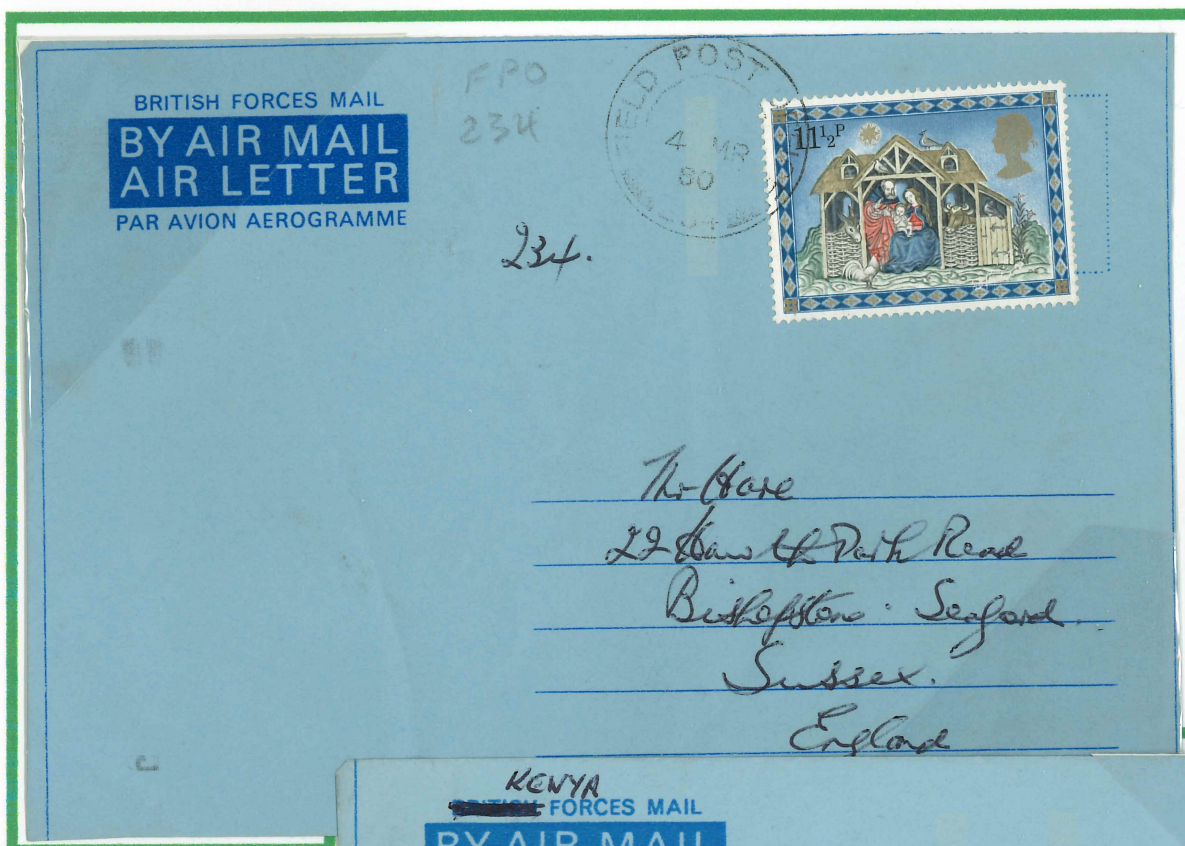 BRITISH FORCES MAIL
BY AIR MAIL
AIR LETTER
PAR AVION AEROGRAMME
FPO
234
FIELD POST
4 MR
80
11½P
234.
Mr Hare
22 Hawth Park Road
Bishopstone · Seaford
Sussex.
England
KENYA
FORCES MAIL
BY AIR MAIL